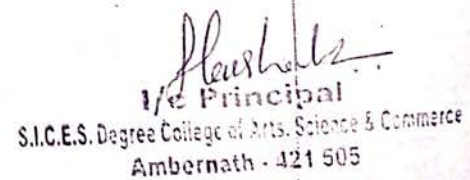 I/c Principal
S.I.C.E.S. Degree College of Arts, Science & Commerce
Ambernath - 421 505